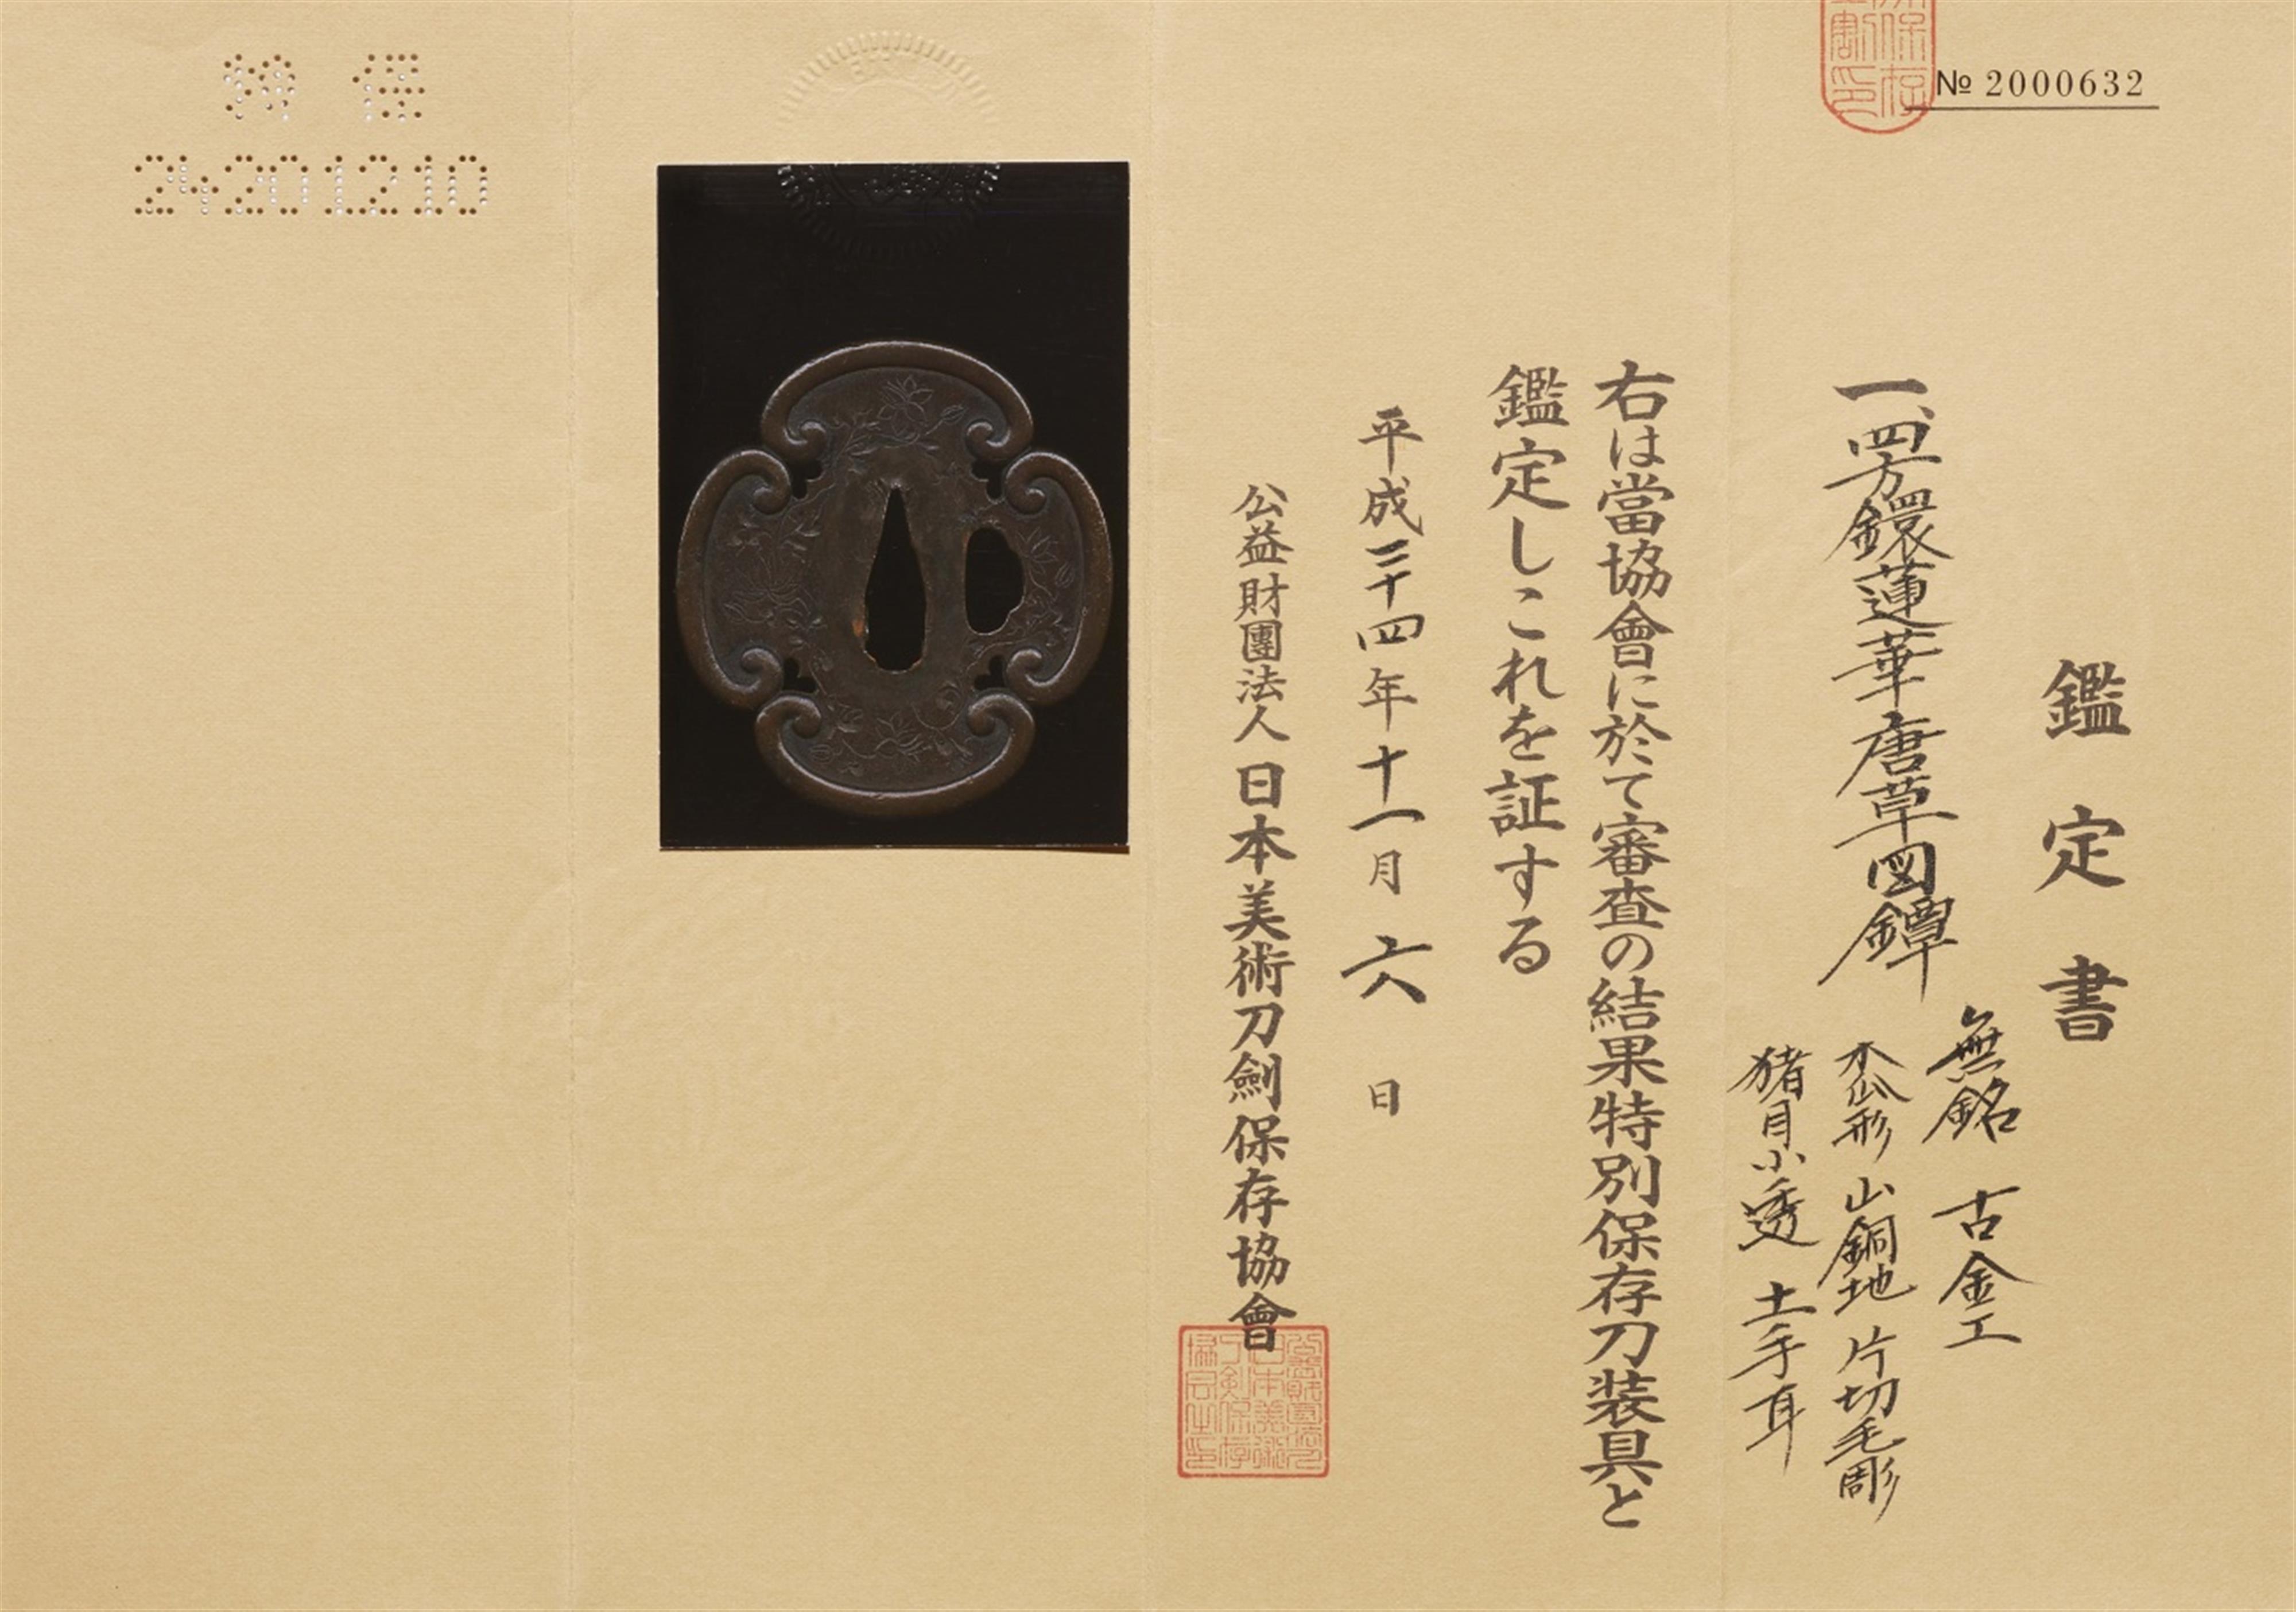 № 2000632
鑑定書
一、四方鐶蓮華唐草図鐔
無銘 古金工
木瓜形 山銅地 片切毛彫
猪目小透 土手耳
右は當協會に於て審査の結果特別保存刀装具と
鑑定しこれを証する
平成二十四年十一月六日
公益財團法人日本美術刀劍保存協會
特 保
24201210